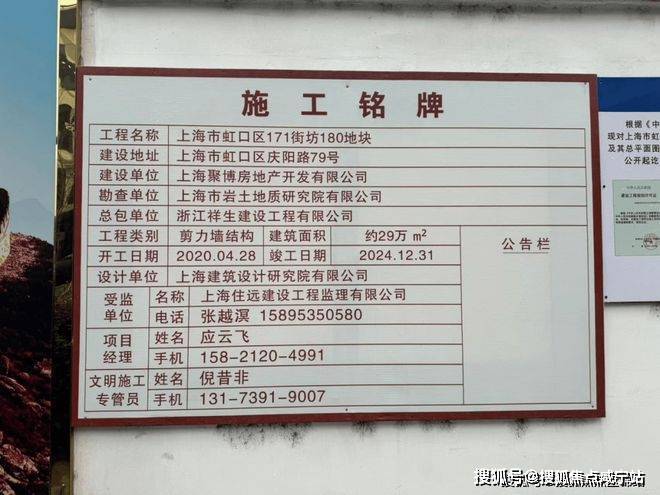 施工铭牌
工程名称 上海市虹口区171街坊180地块
建设地址 上海市虹口区庆阳路79号
建设单位 上海聚博房地产开发有限公司
勘查单位 上海市岩土地质研究院有限公司
总包单位 浙江祥生建设工程有限公司
工程类别 剪力墙结构 建筑面积 约29万 m²
开工日期 2020.04.28 竣工日期 2024.12.31
设计单位 上海建筑设计研究院有限公司
受监单位 名称 上海住远建设工程监理有限公司
电话 张越溟 15895350580
项目经理 姓名 应云飞
手机 158-2120-4991
文明施工专管员 姓名 倪昔非
手机 131-7391-9007
公告栏
根据《中
现对上海市虹
及其总平面图
公开起讫
搜狐号@搜狐焦点咸宁站